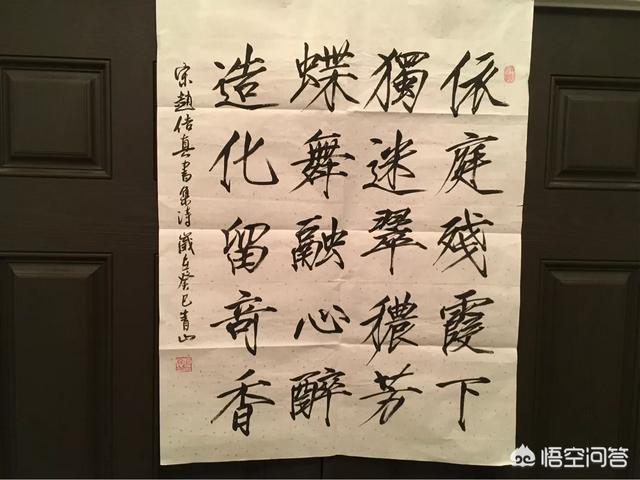 依庭殘霞下
獨迷翠穠芳
蝶舞融心醉
造化留竒香
宋趙佶真書集詩歲在癸巳青山
悟空问答